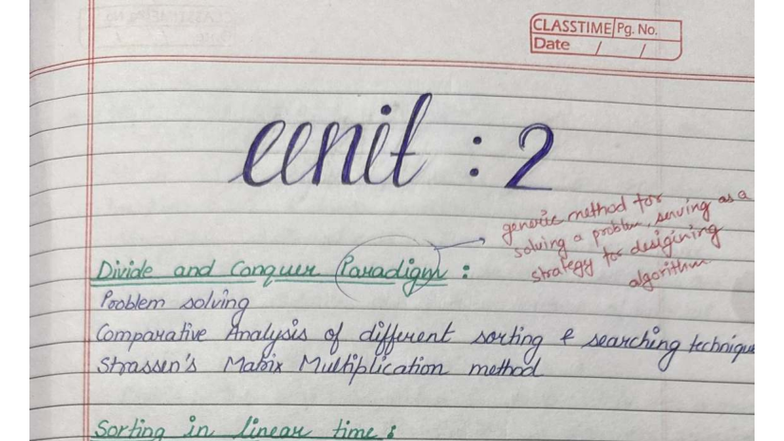 CLASSTIME Pg. No.
Date / /
Unit : 2
generic method for
solving a problem, serving as a
strategy for desigining
algorithm
Divide and Conquer Paradigm :
Problem solving
Comparative Analysis of different sorting & searching technique
Strassen's Matrix Multiplication method
Sorting in linear time :